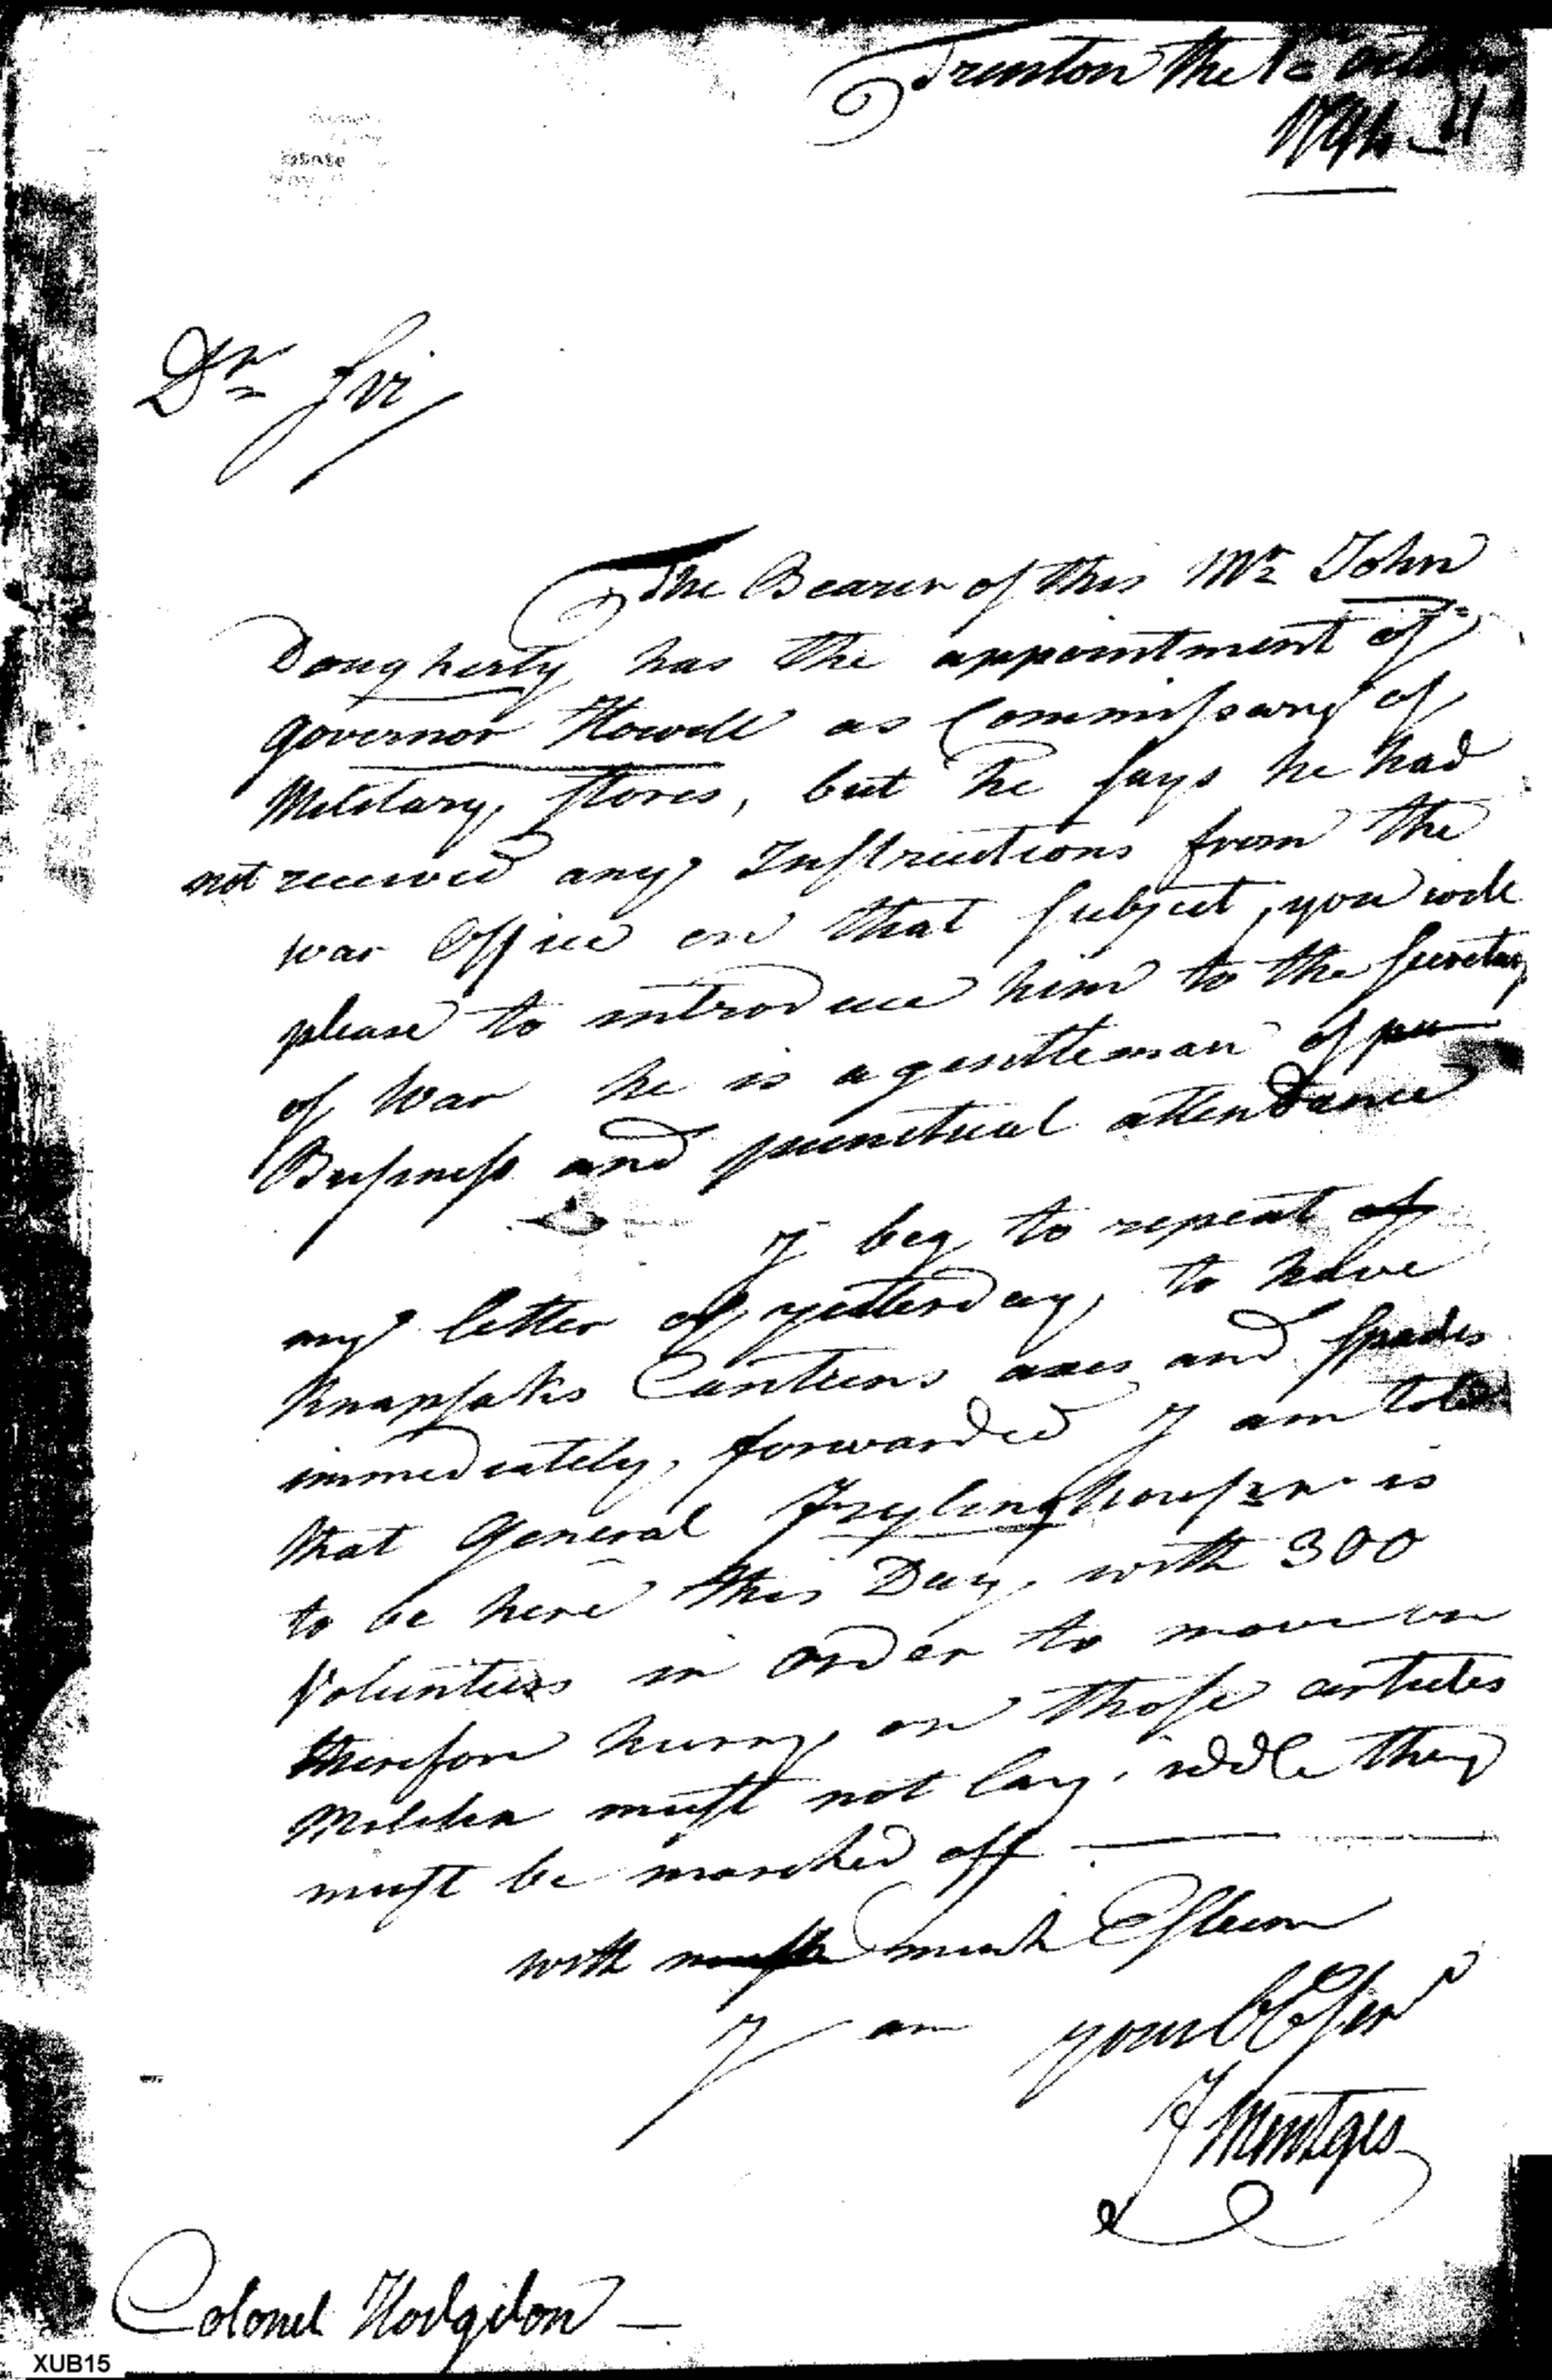 Trenton the 1= October
1794 -
Dr Sir
The Bearer of this Mr John
Dougherty has the appointment of
governor Howell as Commissary of
Military Stores, but he says he had
not received any Instructions from the
war Office on that subject, you will
please to introduce him to the Secretary
of War he is a gentleman of pu
Business and punctual attendance
I beg to repeat of
my letter of yesterday, to have
knapsaks Canteens axes and Spades
immediately, forwarded I am told
that General Frylinghousen is
to be here this Day, with 300
Volunteers in order to move on
therefore hurry on those articles
Militia must not lay idle they
must be marched off
with much Esteem
I am your Ob Ser
J Mentges
Colonel Hodgdon -
XUB15